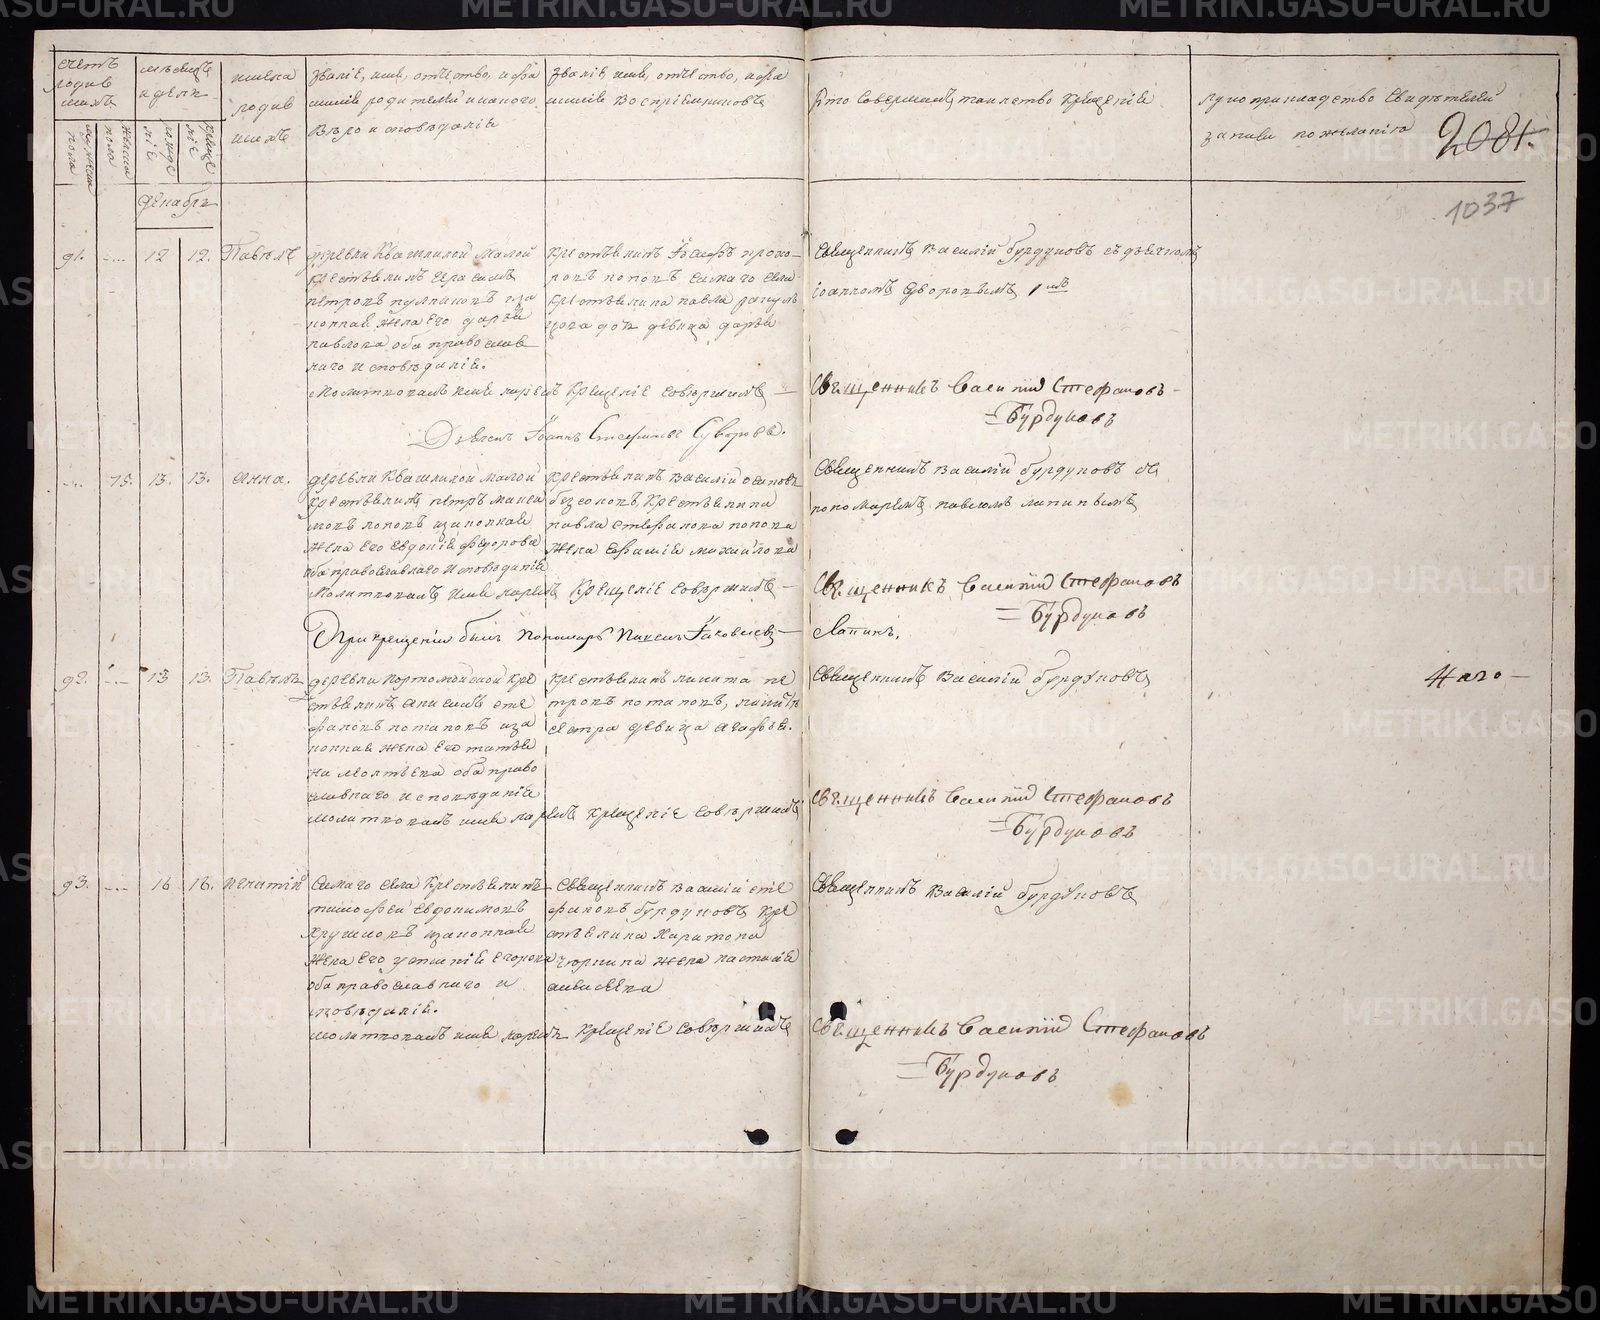 счетъ родив шихъ
мужеска пола
женска пола
мѣсяцъ и день
рожде ніе
креще ніе
имена родив шихъ
званіе, имя, отчество, и фа
милія родителей и какого
вѣроисповѣданія
званіе имя, отчество, и фа
милія воспріемниковъ
Кто совершилъ таинство крещенія
рукоприкладство свидѣтелей
записи по желанію
2081.
1037
Декабрь
91. 12 12. Павелъ
деревни Квашниной Малой
крестьянинъ Герасимъ
Петровъ
жена его Дарья
Павлова оба православ
наго исповѣданія.
крестьянинъ Іосифъ Прохо
ровъ Поповъ самаго села
крестьянина Павла
дочь девица Дарья
Священникъ Василій Бурдуковъ съ дьячкомъ
Іоанномъ Суворовымъ
Молитвовалъ имя нарекъ крещеніе совершилъ
Священникъ Василій Стефановъ
Бурдуковъ
Дьячекъ Іоаннъ Стефановъ Суворовъ.
75. 13. 13. Анна.
деревни Квашниной Малой
крестьянинъ Петръ Макси
мовъ Поповъ и законная
жена его Евдокія Федорова
оба православнаго исповѣданія
крестьянинъ Василій Осиповъ
крестьянина
Павла Стефанова Попова
жена Ефимія Михайлова
Священникъ Василій Бурдуковъ съ
пономаремъ Павломъ Лапинымъ
Молитвовалъ имя нарекъ крещеніе совершилъ
Священникъ Василій Стефановъ
Бурдуковъ
При крещеніи былъ Пономарь Павелъ Іаковлевъ
Лапинъ.
92. 13 13. Павелъ
деревни Портомойской кре
стьянинъ Анисимъ Сте
фановъ Потаповъ и за
конная жена его Татья
на Леонтьева оба право
славнаго исповѣданія
крестьянинъ Никита Пе
тровъ Потаповъ,
сестра девица Агафья.
Священникъ Василій Бурдуковъ
Молитвовалъ имя нарекъ крещеніе совершилъ
Священникъ Василій Стефановъ
Бурдуковъ
93. 16 16. Игнатій
Самаго села крестьянинъ
Тимофей Евдокимовъ
и законная
жена его Устинія Егорова
оба православнаго и
сповѣданія.
Священникъ Василій Сте
фановъ Бурдуковъ кре
стьянина Харитона
жена Настасія
Алексѣева
Священникъ Василій Бурдуковъ
молитвовалъ имя нарекъ крещеніе совершилъ
Священникъ Василій Стефановъ
Бурдуковъ
METRIKI.GASO-URAL.RU